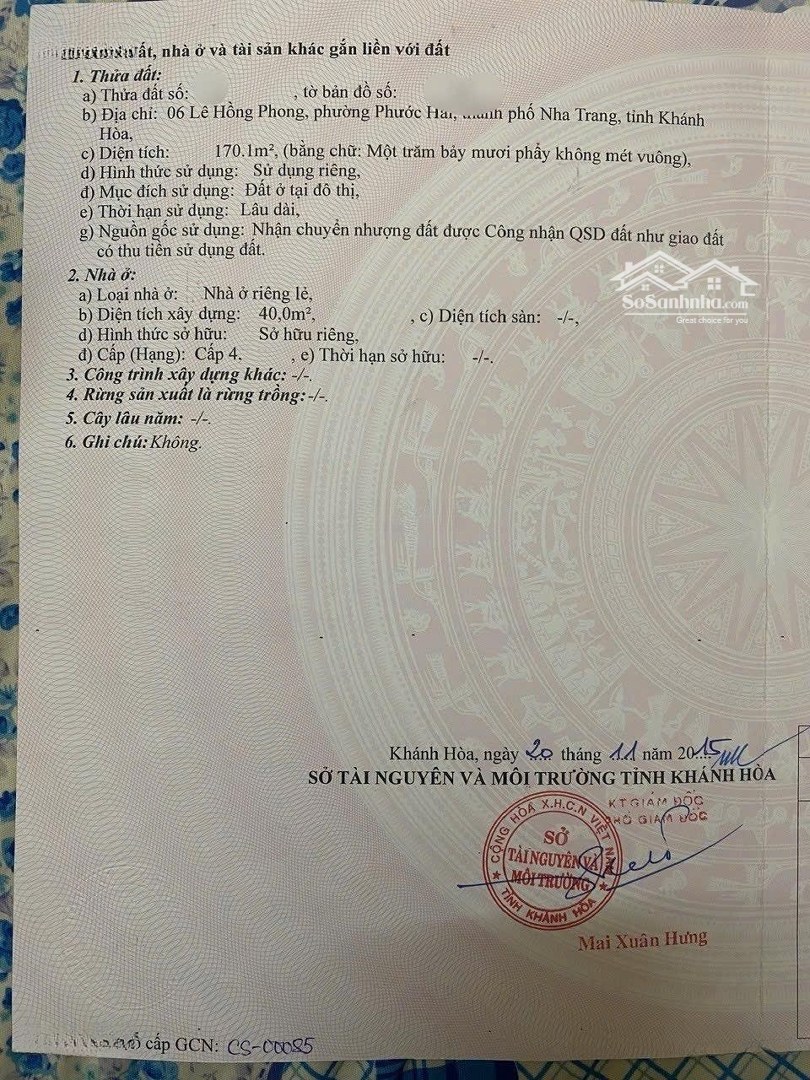 ất, nhà ở và tài sản khác gắn liền với đất
1. Thửa đất:
a) Thửa đất số: , tờ bản đồ số:
b) Địa chỉ: 06 Lê Hồng Phong, phường Phước Hải, thành phố Nha Trang, tỉnh Khánh
Hòa,
c) Diện tích: 170.1m², (bằng chữ: Một trăm bảy mươi phẩy không mét vuông),
d) Hình thức sử dụng: Sử dụng riêng,
đ) Mục đích sử dụng: Đất ở tại đô thị,
e) Thời hạn sử dụng: Lâu dài,
g) Nguồn gốc sử dụng: Nhận chuyển nhượng đất được Công nhận QSD đất như giao đất
có thu tiền sử dụng đất.
2. Nhà ở:
a) Loại nhà ở: Nhà ở riêng lẻ,
b) Diện tích xây dựng: 40,0m², , c) Diện tích sàn: -/-,
d) Hình thức sở hữu: Sở hữu riêng,
đ) Cấp (Hạng): Cấp 4, , e) Thời hạn sở hữu: -/-.
3. Công trình xây dựng khác: -/-.
4. Rừng sản xuất là rừng trồng: -/-.
5. Cây lâu năm: -/-.
6. Ghi chú: Không.
SoSanhnha.com
Great choice for you
Khánh Hòa, ngày 20 tháng 11 năm 2015
SỞ TÀI NGUYÊN VÀ MÔI TRƯỜNG TỈNH KHÁNH HÒA
KT GIÁM ĐỐC
PHÓ GIÁM ĐỐC
CỘNG HÒA X.H.C.N VIỆT NAM
SỞ
TÀI NGUYÊN VÀ
MÔI TRƯỜNG
TỈNH KHÁNH HÒA
Mai Xuân Hưng
cấp GCN: CS-00085